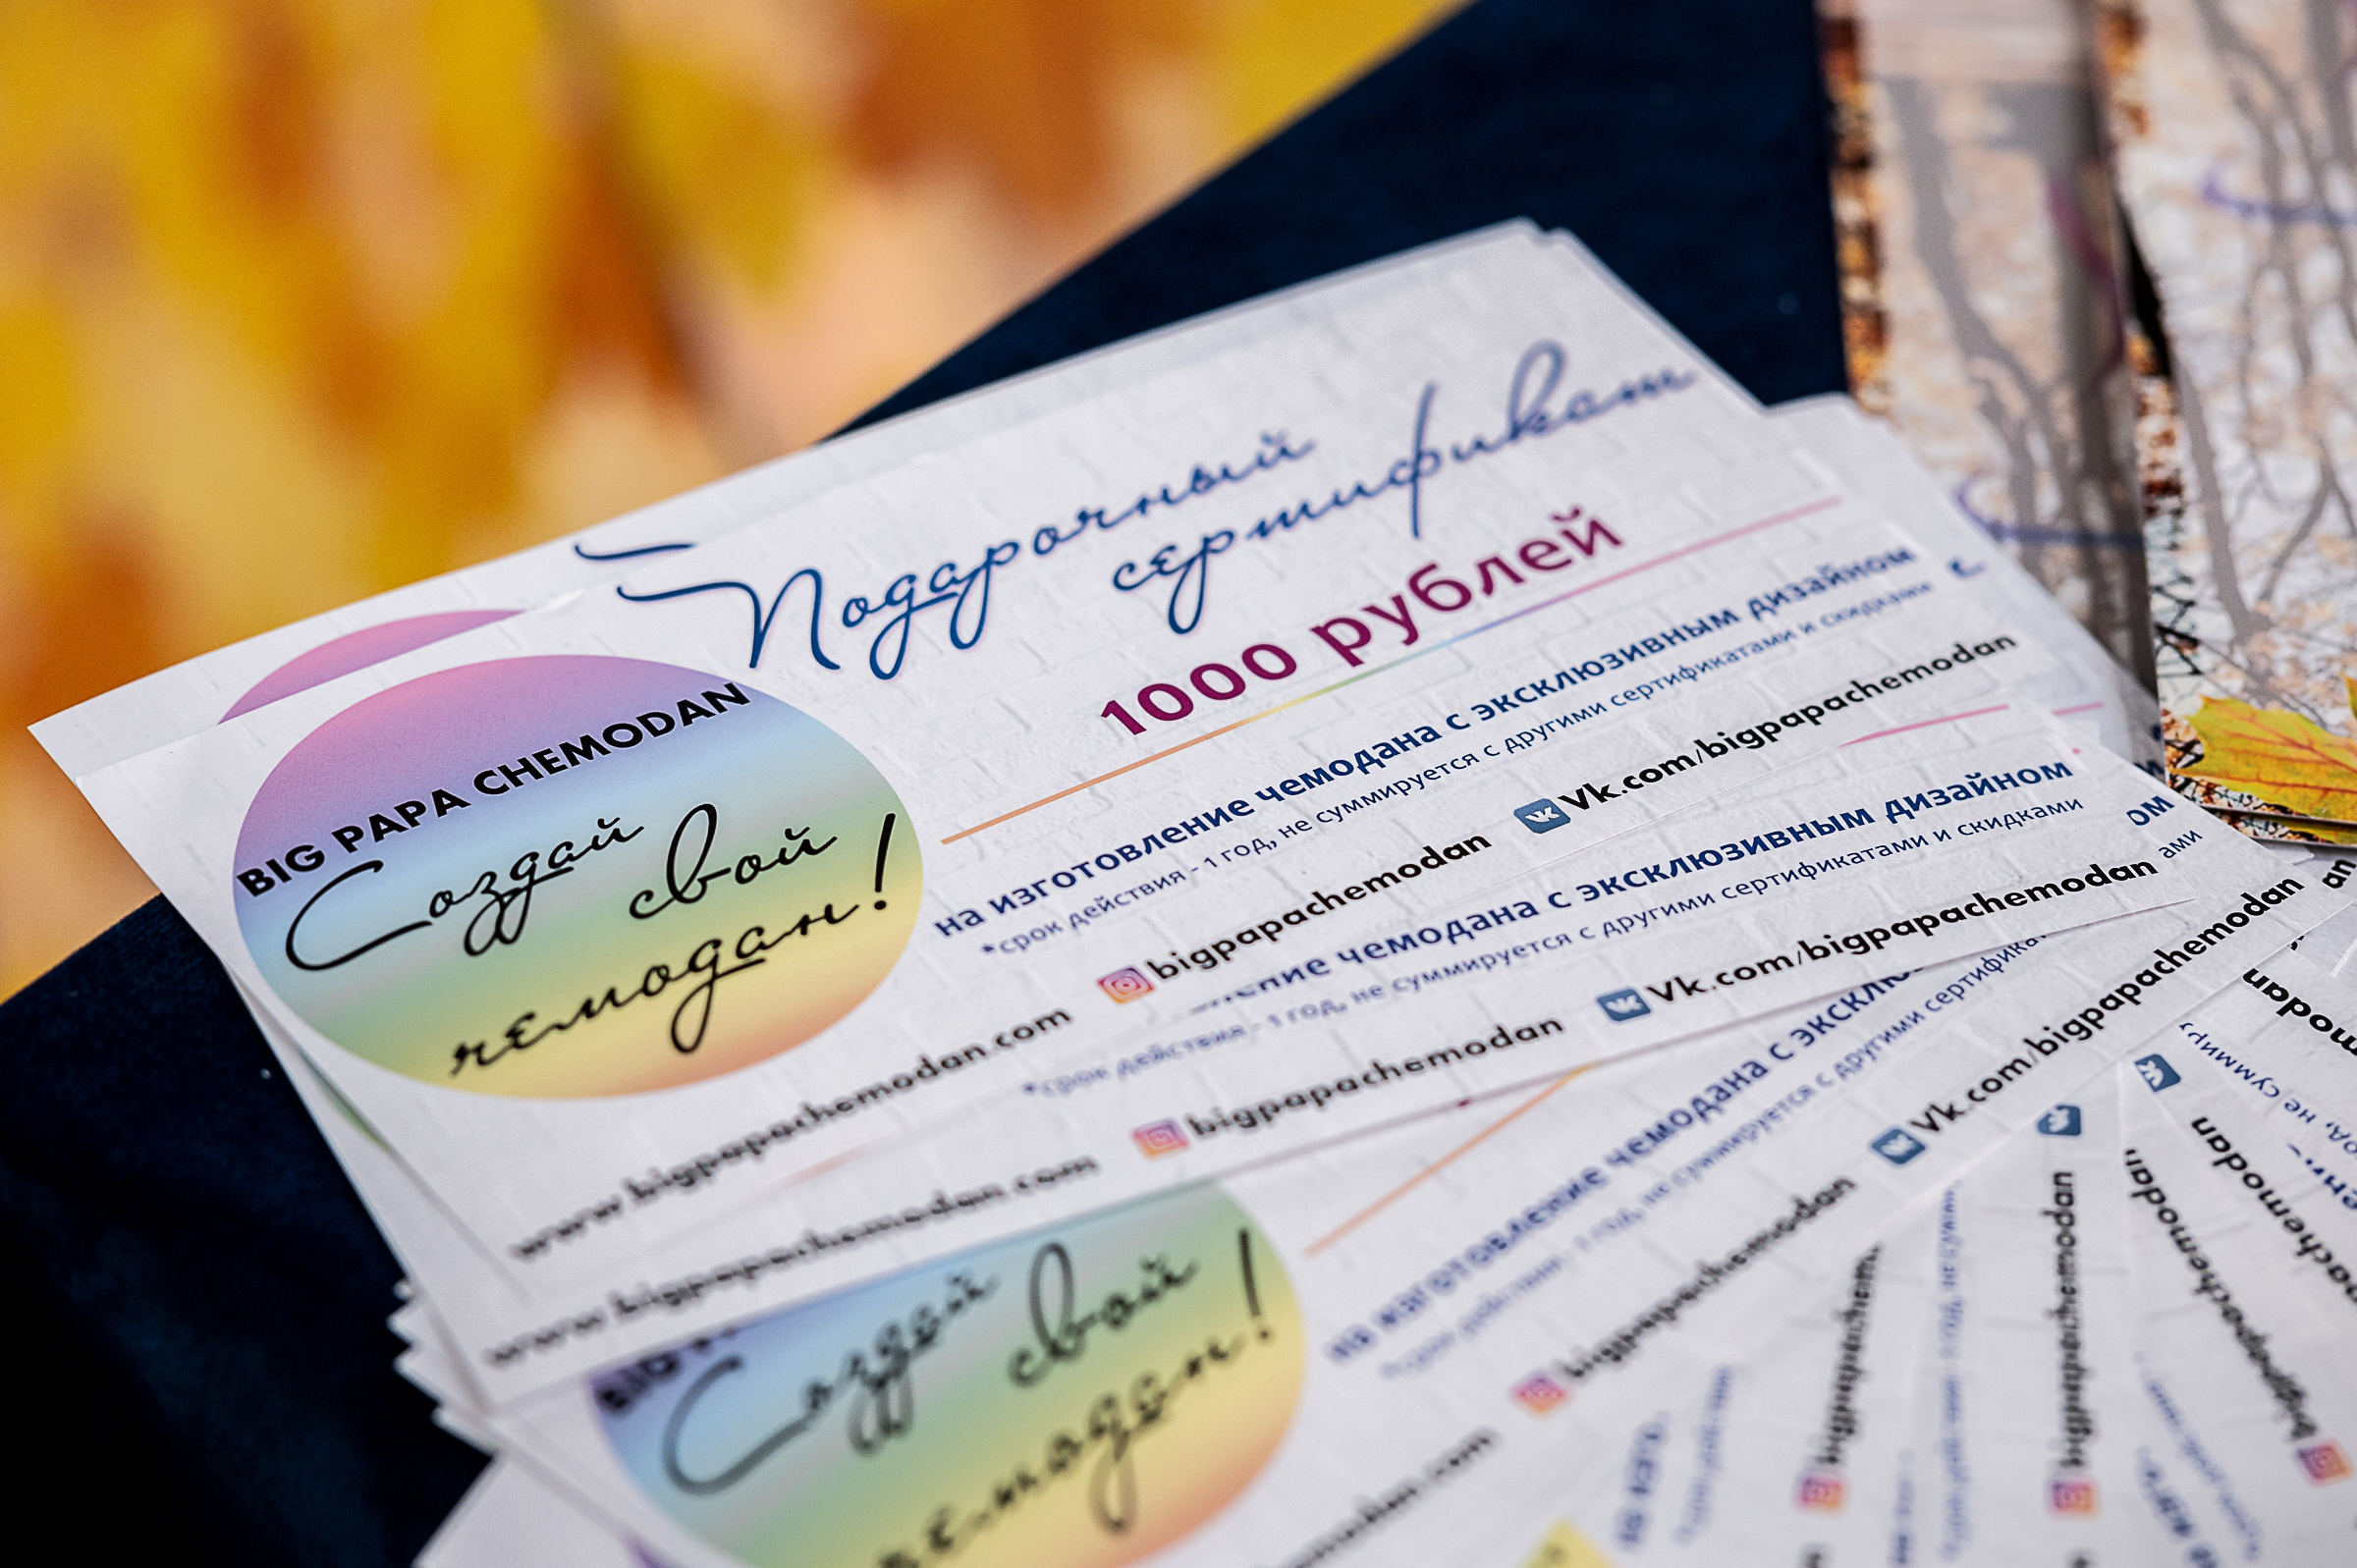 Подарочный
сертификат
1000 рублей
на изготовление чемодана с эксклюзивным дизайном
*срок действия - 1 год, не суммируется с другими сертификатами и скидками
BIG PAPA CHEMODAN
Создай
свой
чемодан!
www.bigpapachemodan.com
bigpapachemodan
Vk.com/bigpapachemodan
чемодана с эксклюзивным дизайном
*срок действия - 1 год, не суммируется с другими сертификатами и скидками
www.bigpapachemodan.com
bigpapachemodan
Vk.com/bigpapachemodan
ом
ами
Создай
свой
чемодан!
на изготовление чемодана с
не суммируется с другими
bigpapachemodan
Vk.com/bigpapachemodan
an
bigpapachemodan
bigpapachemodan